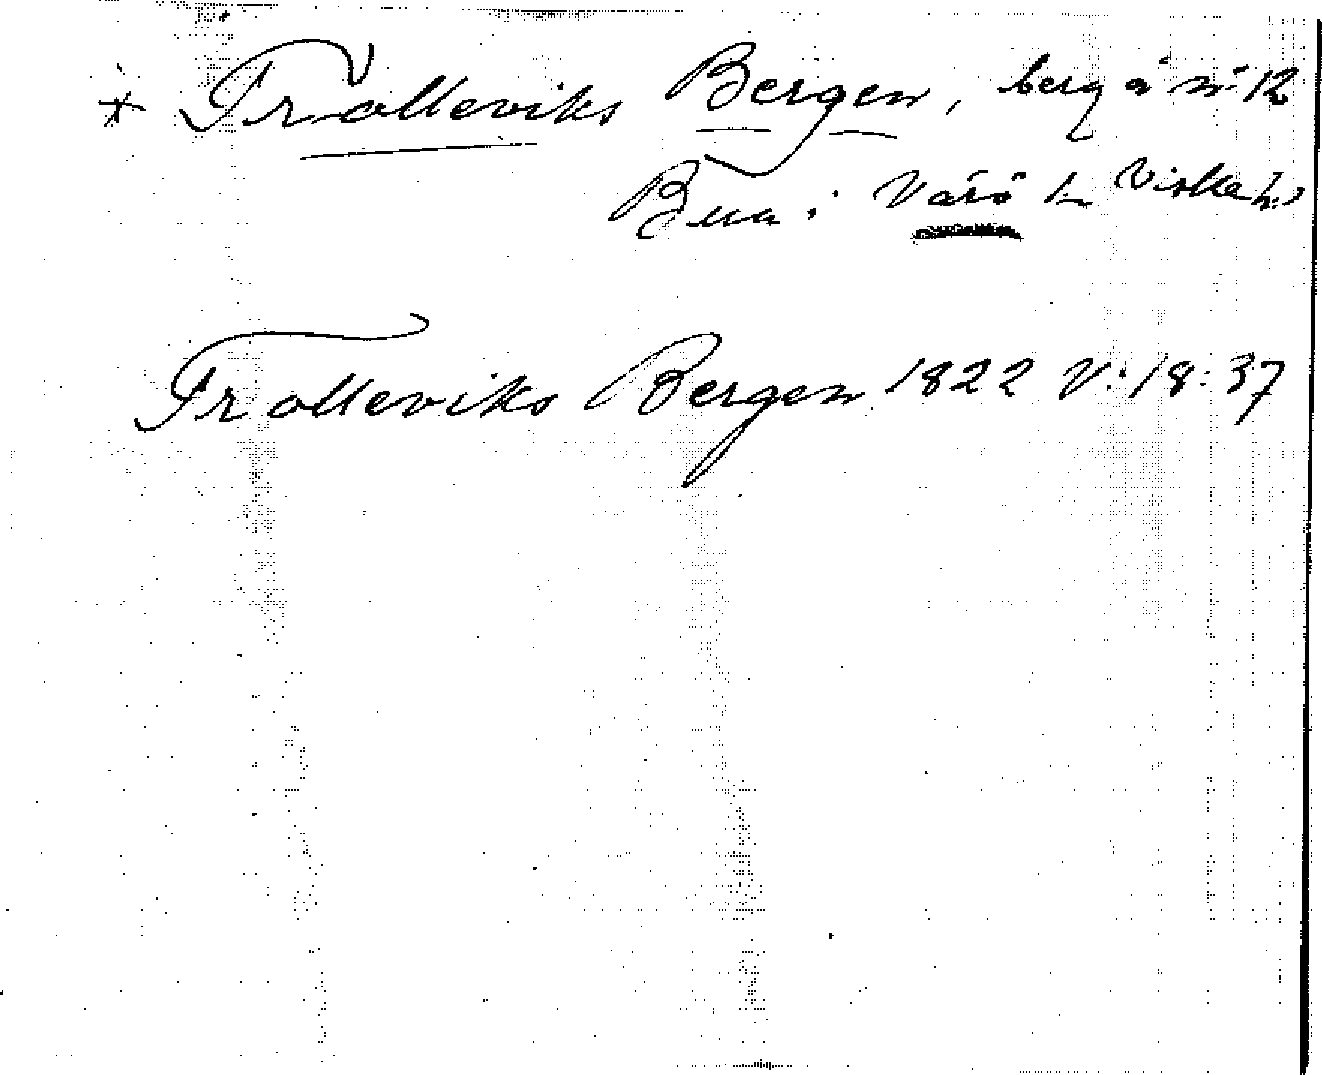 * Trolleviks Bergen, berg å nº 12
Bua i Värö sn Viske hd
Trolleviks Bergen 1822 V:18:37